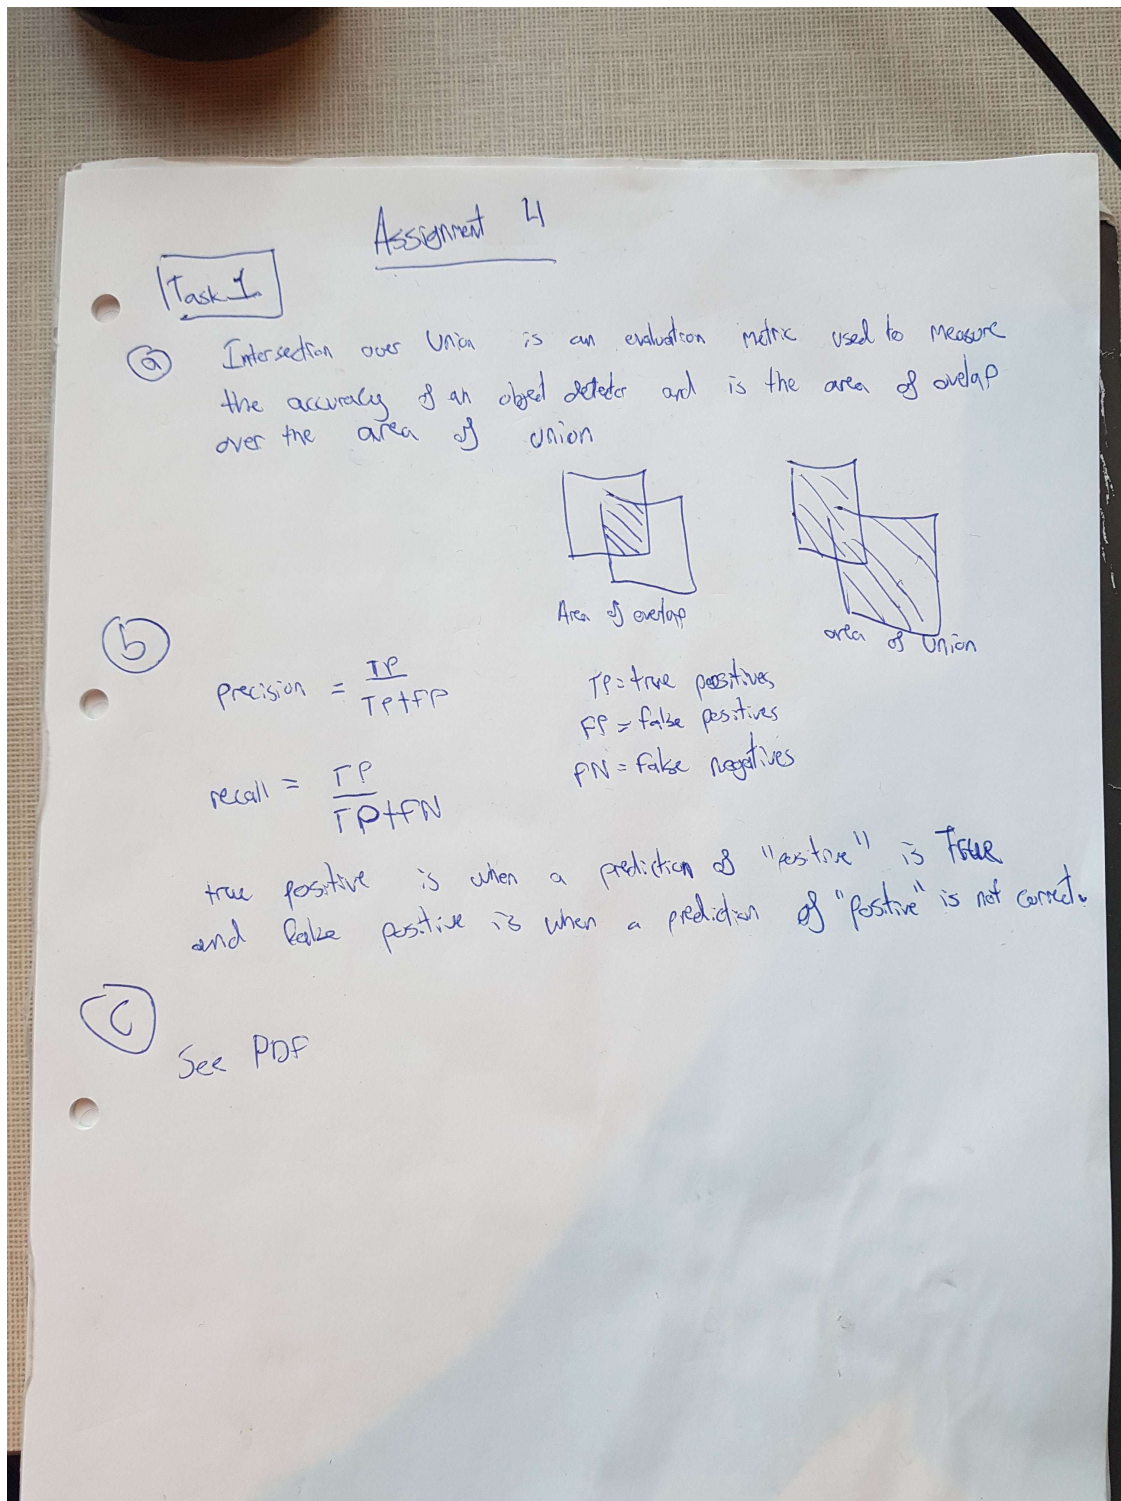 Assignment 4
Task 1
a
Intersection over Union is an evaluation metric used to measure
the accuracy of an object detector and is the area of ovelap
over the area of union
Area of overlap
area of Union
b
precision = TP / TP+FP
TP = true positives
FP = false positives
FN = False negatives
recall = TP / TP+FN
true positive is when a prediction of "positive" is True
and false positive is when a prediction of "positive" is not correct.
c
See PDF